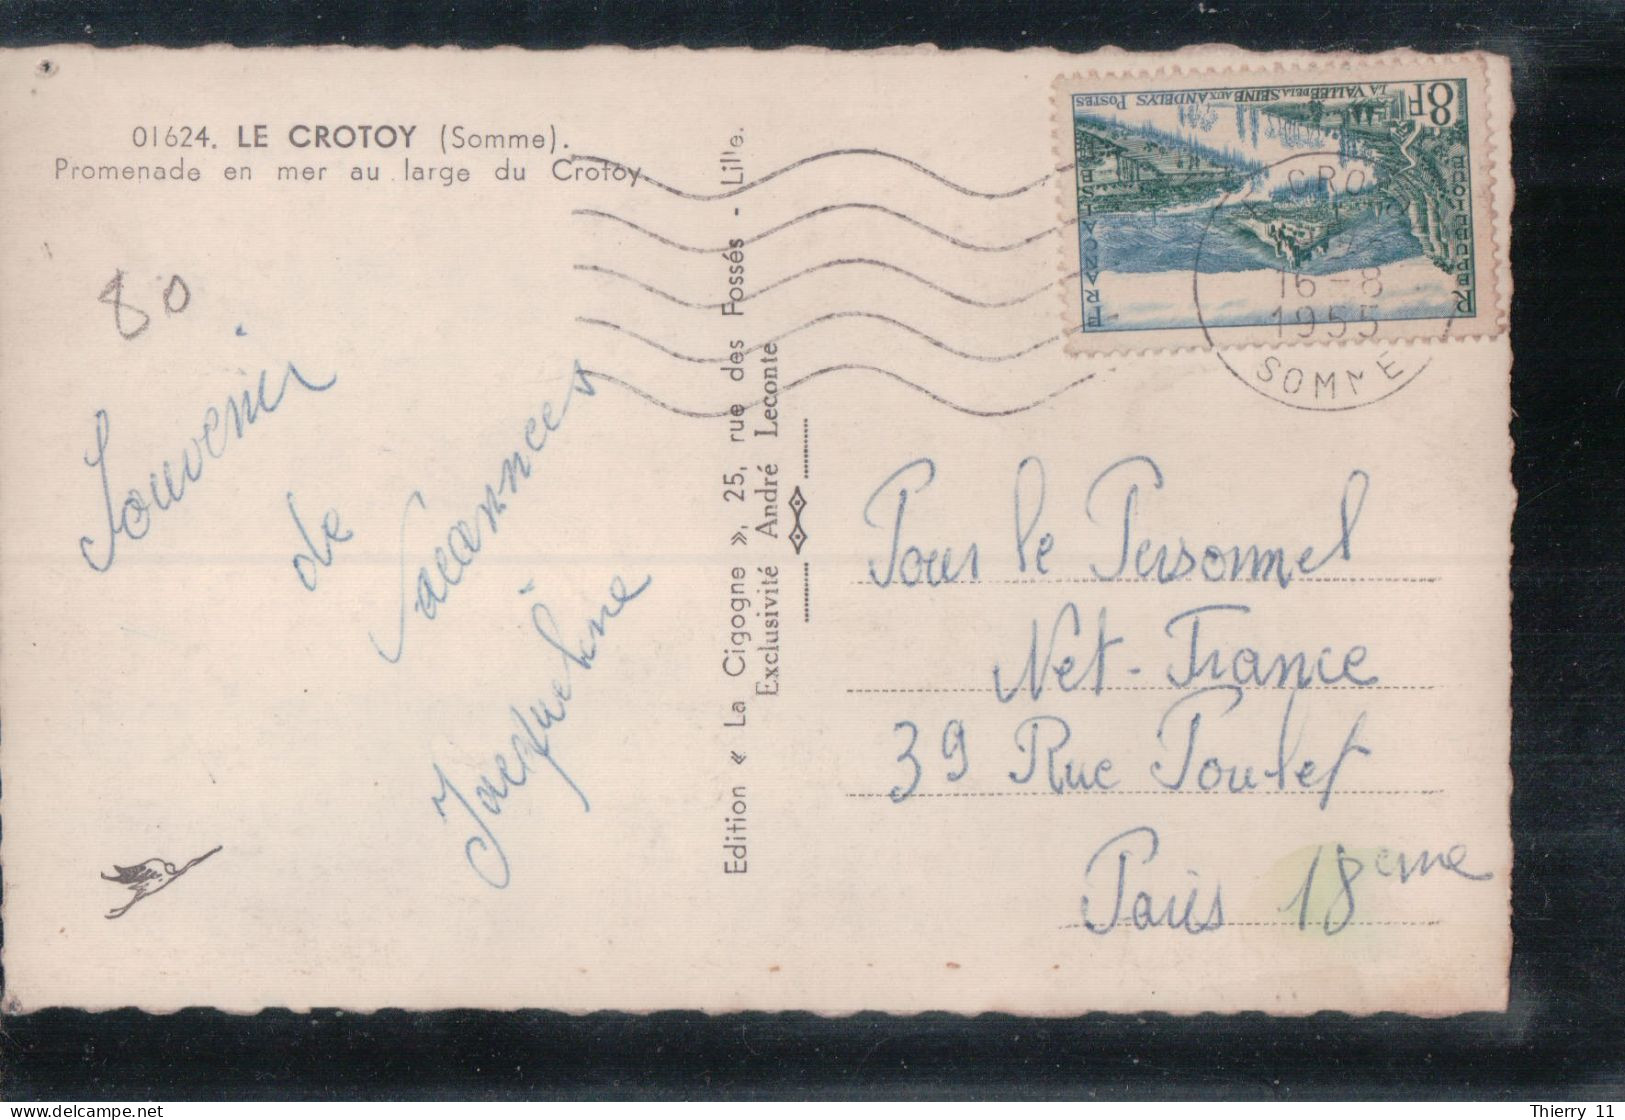 01624. LE CROTOY (Somme).
Promenade en mer au large du Crotoy
80
Souvenir
de
Vacannces
Jacqueline
Edition « La Cigogne », 25, rue des Fossés - Lille.
Exclusivité André Leconte
8F
LA VALLEE DE LA SEINE AUX ANDELYS POSTES
REPUBLIQUE FRANÇAISE
CRO
16-8
1955
SOMME
Pour le Personnel
Net-France
39 Rue Poulet
Paris 18eme
Thierry 11